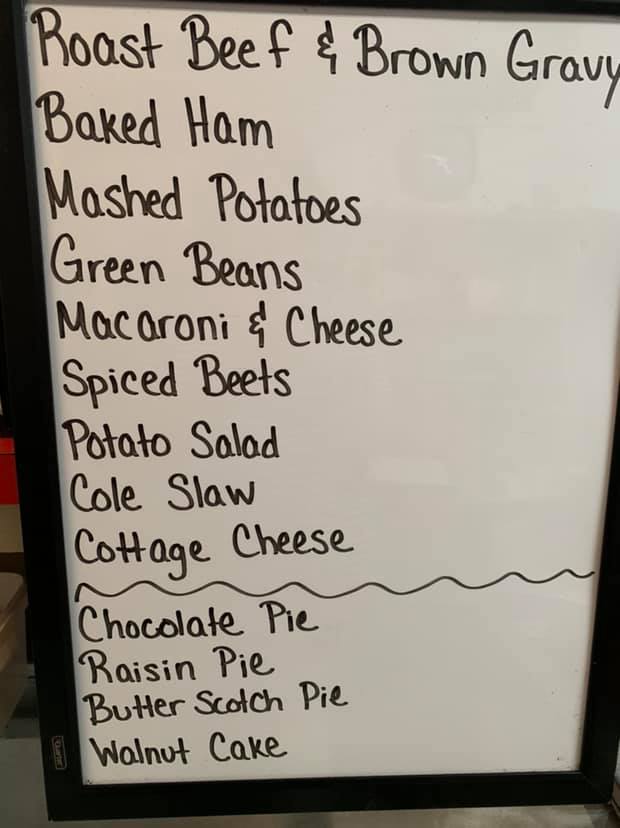 Roast Beef & Brown Gravy
Baked Ham
Mashed Potatoes
Green Beans
Macaroni & Cheese
Spiced Beets
Potato Salad
Cole Slaw
Cottage Cheese
Chocolate Pie
Raisin Pie
Butter Scotch Pie
Walnut Cake